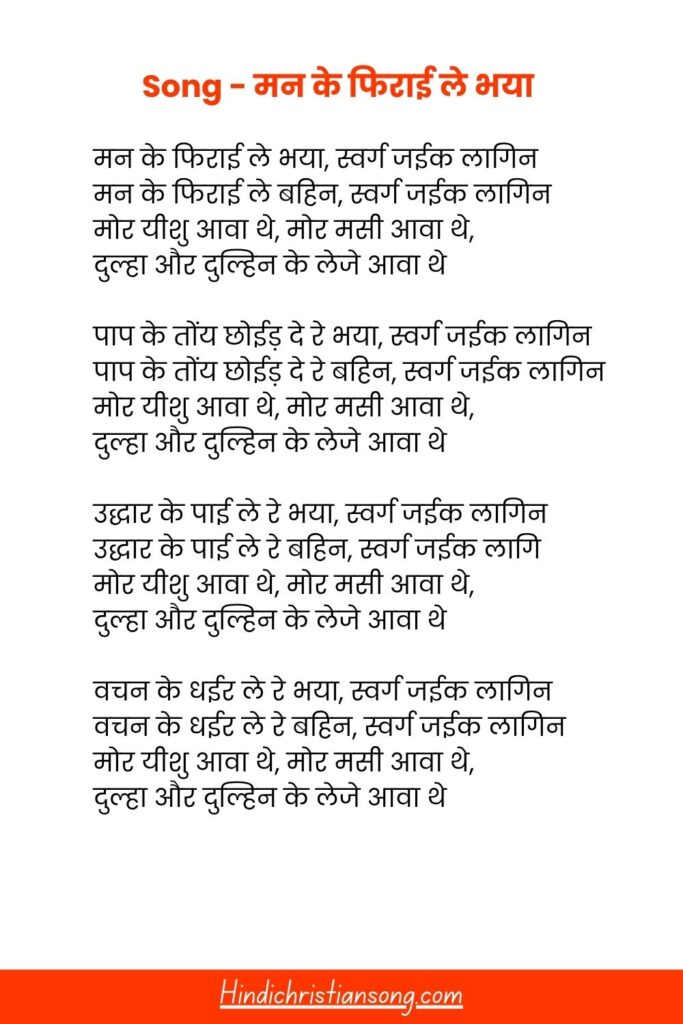 Song - मन के फिराई ले भया
मन के फिराई ले भया, स्वर्ग जईक लागिन
मन के फिराई ले बहिन, स्वर्ग जईक लागिन
मोर यीशु आवा थे, मोर मसी आवा थे,
दुल्हा और दुल्हिन के लेजे आवा थे
पाप के तोंय छोईड़ दे रे भया, स्वर्ग जईक लागिन
पाप के तोंय छोईड़ दे रे बहिन, स्वर्ग जईक लागिन
मोर यीशु आवा थे, मोर मसी आवा थे,
दुल्हा और दुल्हिन के लेजे आवा थे
उद्धार के पाई ले रे भया, स्वर्ग जईक लागिन
उद्धार के पाई ले रे बहिन, स्वर्ग जईक लागि
मोर यीशु आवा थे, मोर मसी आवा थे,
दुल्हा और दुल्हिन के लेजे आवा थे
वचन के धईर ले रे भया, स्वर्ग जईक लागिन
वचन के धईर ले रे बहिन, स्वर्ग जईक लागिन
मोर यीशु आवा थे, मोर मसी आवा थे,
दुल्हा और दुल्हिन के लेजे आवा थे
Hindichristiansong.com